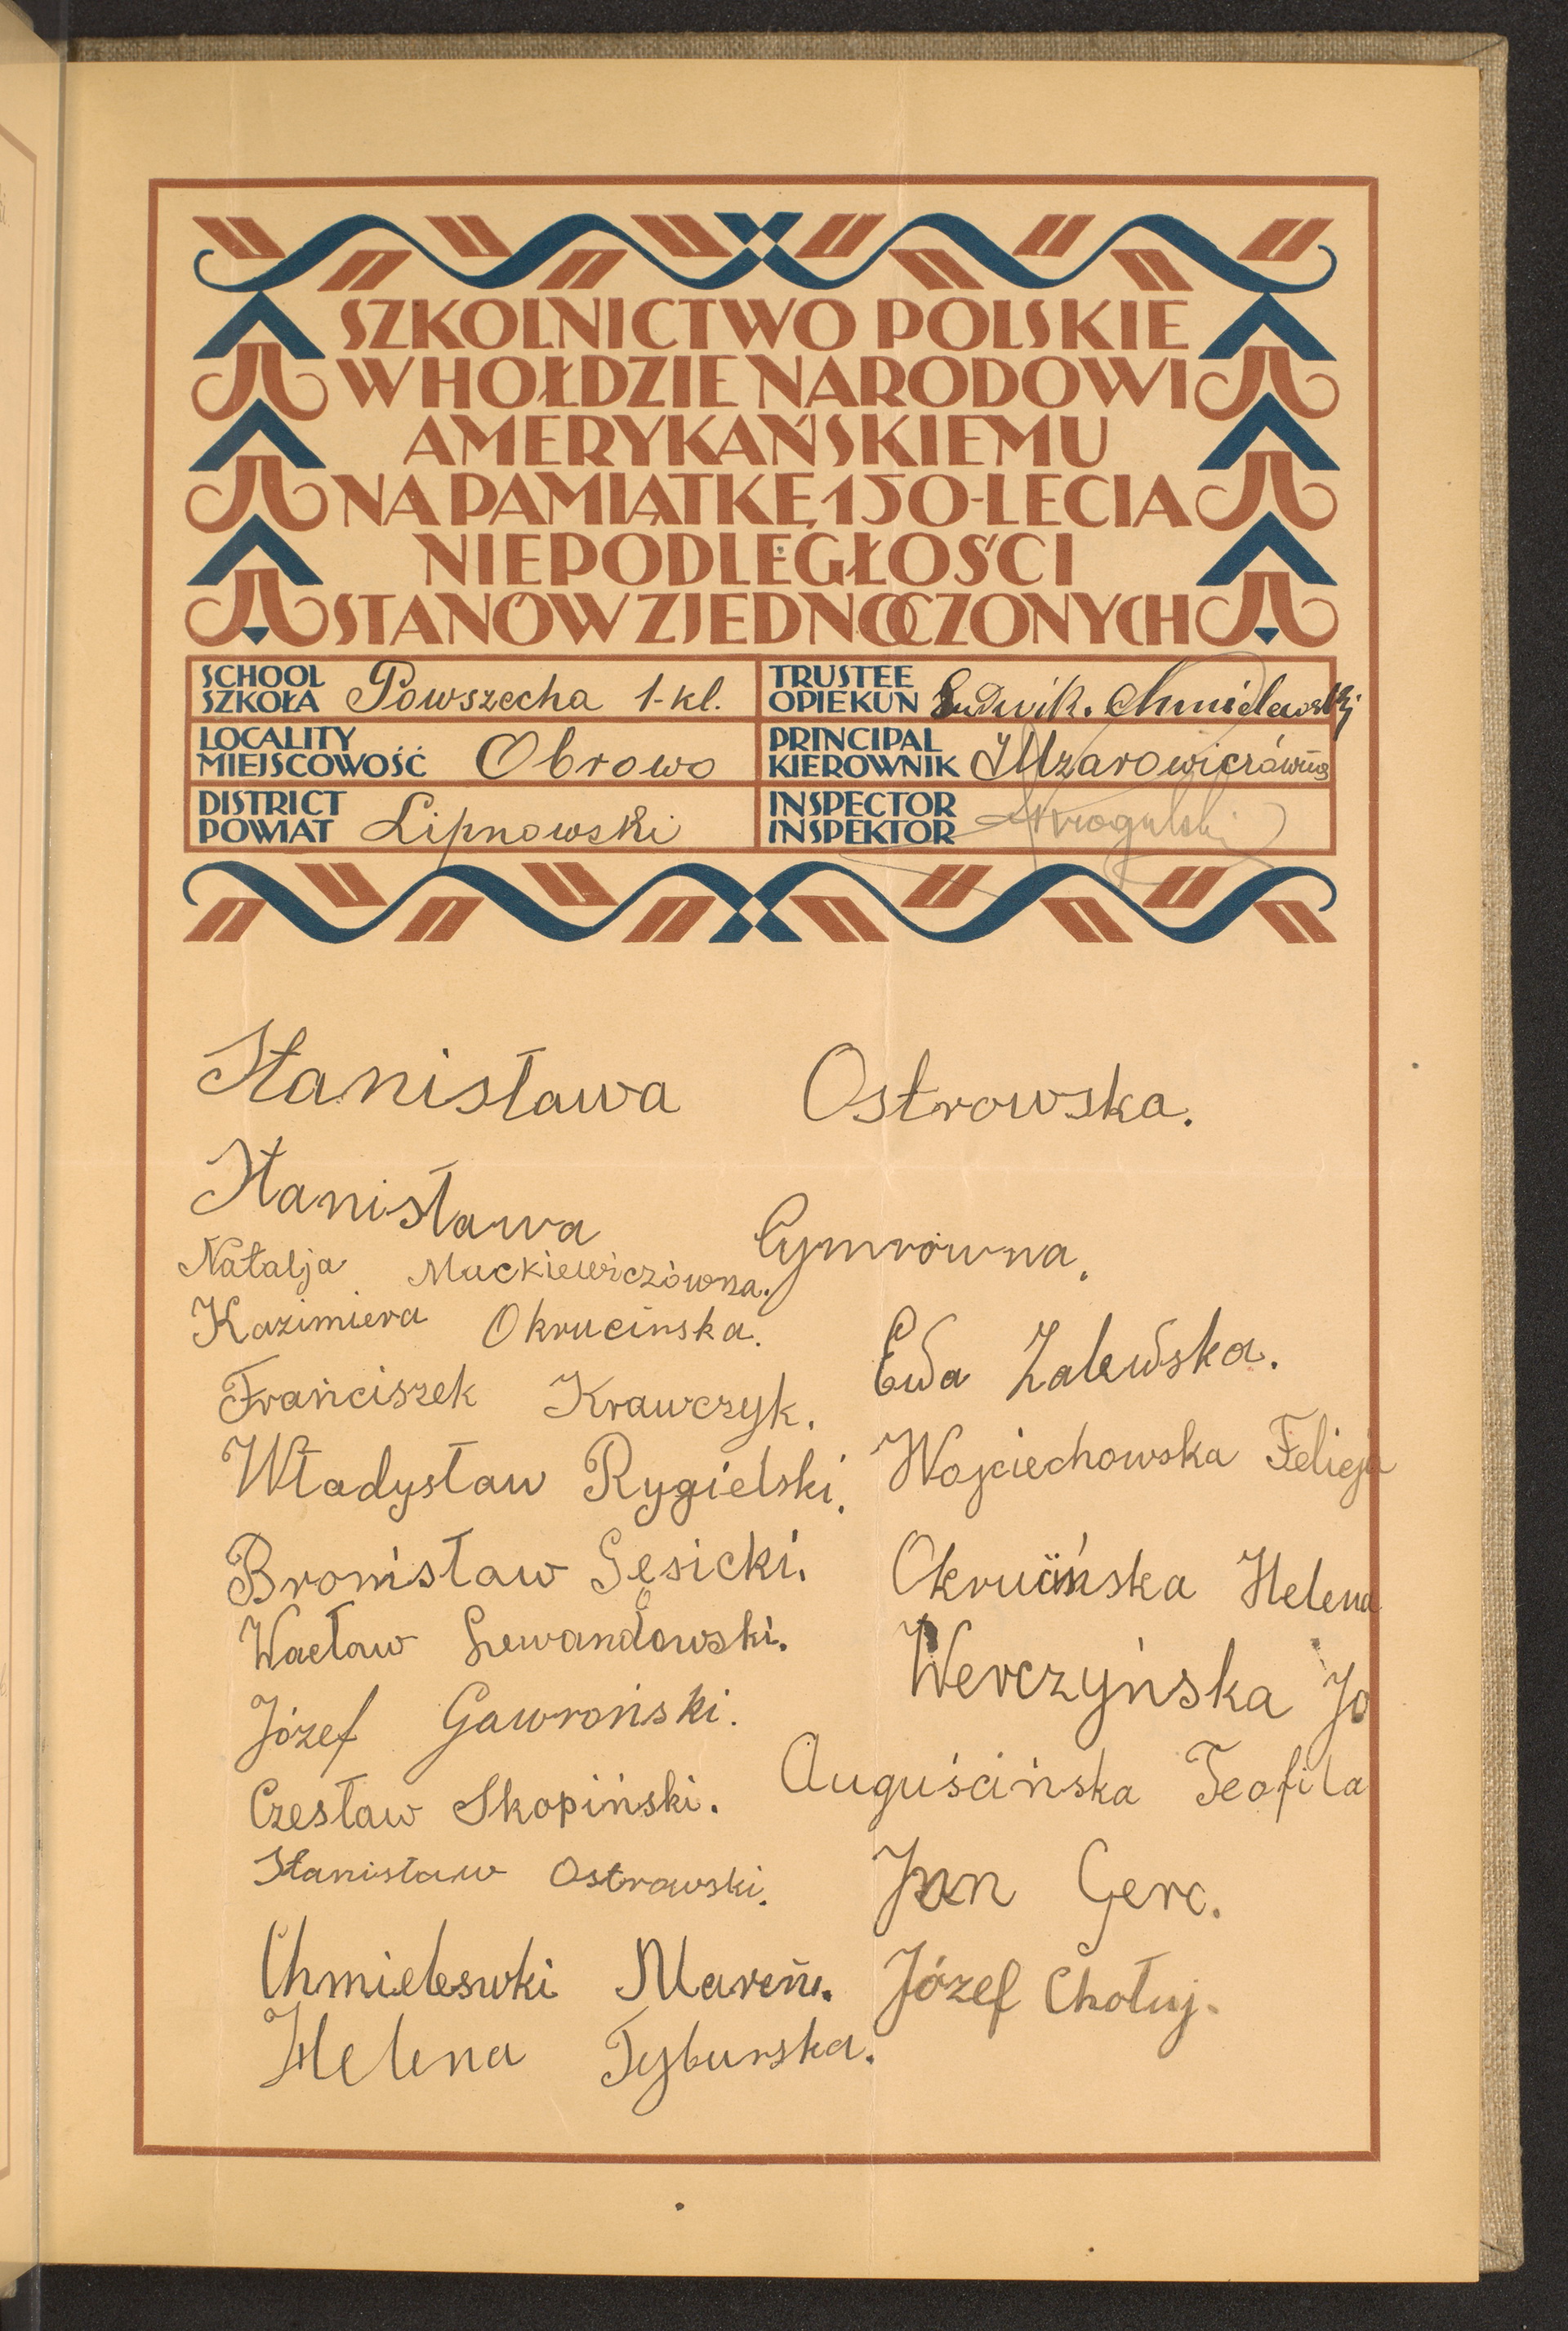 SZKOLNICTWO POLSKIE
W HOŁDZIE NARODOWI
AMERYKAŃSKIEMU
NA PAMIĄTKĘ 150-LECIA
NIEPODLEGŁOŚCI
STANÓW ZJEDNOCZONYCH
SCHOOL
SZKOŁA Powszecha 1-kl.
TRUSTEE
OPIEKUN Ludwik. Chmielewski
LOCALITY
MIEJSCOWOŚĆ Obrowo
PRINCIPAL
KIEROWNIK
DISTRICT
POWIAT Lipnowski
INSPECTOR
INSPEKTOR
Stanisława Ostrowska.
Stanisława Cymrówna.
Natalja Mackiewiczówna.
Kazimiera Okrucinska.
Franciszek Krawczyk.
Władysław Rygielski.
Bronisław Gęsicki.
Wacław Lewandowski.
Józef Gawroński.
Czesław Skopiński.
Stanisław Ostrowski.
Chmieleswki
Helena Tyburska.
Ewa Zalewska.
Wojciechowska Felicja
Okrucińska Helena
Werczyńska Jo
Auguścińska Teofila
Jan Gerc.
Józef Chołuj.